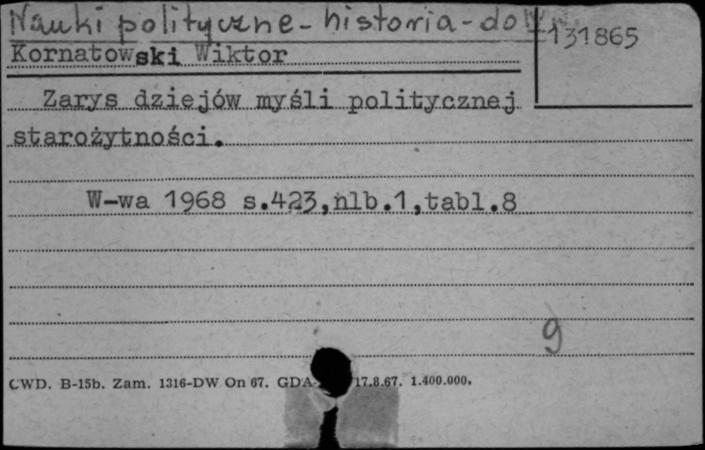 Nauki polityczne - historia - do W w.
131865
Kornatowski Wiktor
Zarys dziejów myśli politycznej
starożytności.
W-wa 1968 s.423,nlb.1,tabl.8
9
CWD. B-15b. Zam. 1316-DW On 67. GDA- 17.8.67. 1.400.000.